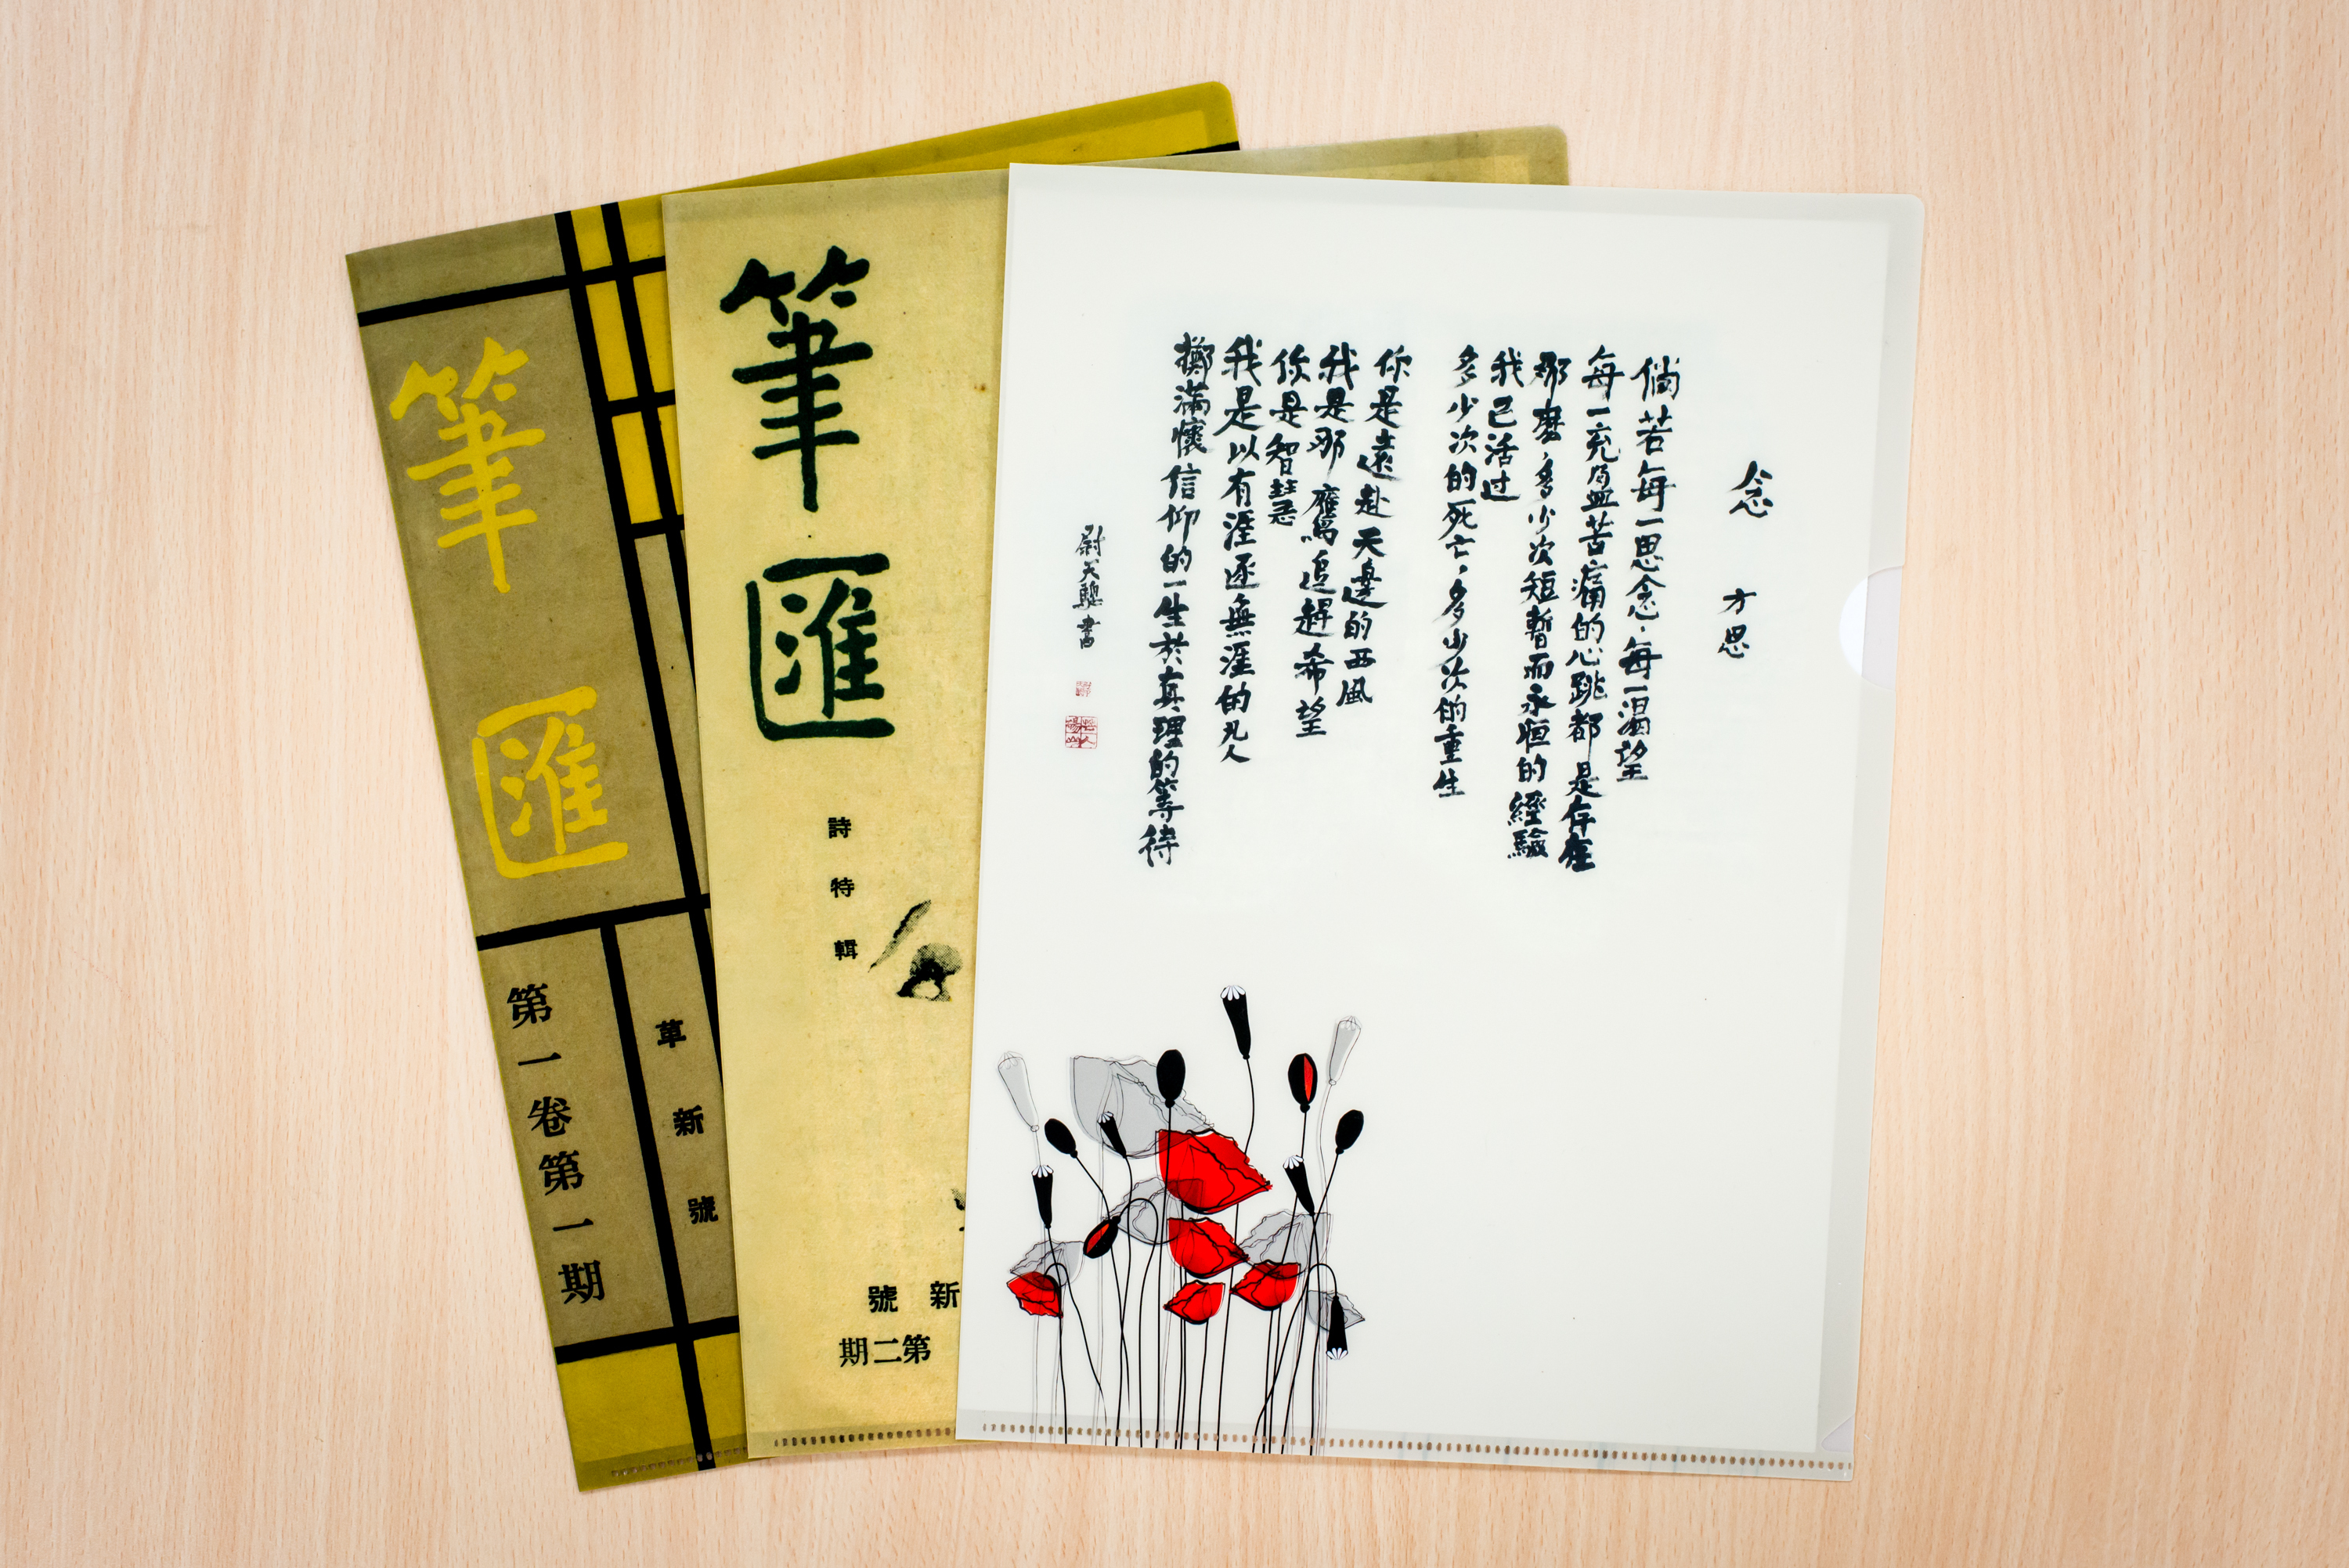 筆匯
第一卷第一期
革新號
筆匯
詩特輯
新號
第二期
念 方思
倘若每一思念，每一渴望
每一充盈苦痛的心跳都是存在
那麼，多少次短暫而永恒的經驗
我已活过
多少次的死亡，多少次的重生
你是遠赴天邊的西風
我是那鷹，追趕希望
你是智慧
我是以有涯逐無涯的凡人
擲滿懷信仰的一生於真理的等待
尉天驄書